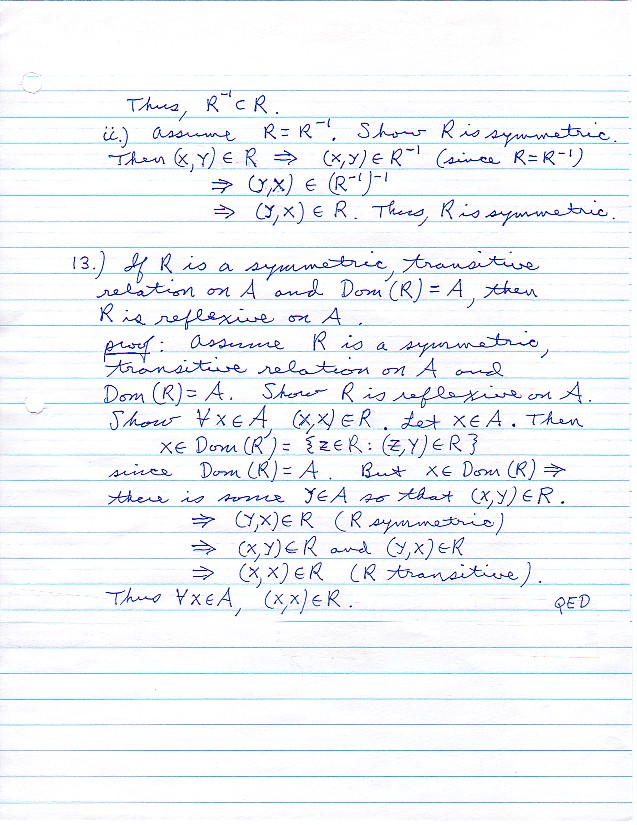 Thus, R⁻¹ ⊂ R.
ii.) Assume R = R⁻¹. Show R is symmetric.
Then (x,y) ∈ R ⇒ (x,y) ∈ R⁻¹ (since R=R⁻¹)
⇒ (y,x) ∈ (R⁻¹)⁻¹
⇒ (y,x) ∈ R. Thus, R is symmetric.
13.) If R is a symmetric, transitive
relation on A and Dom(R) = A, then
R is reflexive on A.
proof: Assume R is a symmetric,
transitive relation on A and
Dom(R) = A. Show R is reflexive on A.
Show ∀x∈A, (x,x)∈R. Let x∈A. Then
x∈ Dom(R) = {z∈R: (z,y)∈R}
since Dom(R) = A. But x∈ Dom(R) ⇒
there is some y∈A so that (x,y)∈R.
⇒ (y,x)∈R (R symmetric)
⇒ (x,y)∈R and (y,x)∈R
⇒ (x,x)∈R (R transitive).
Thus ∀x∈A, (x,x)∈R. QED